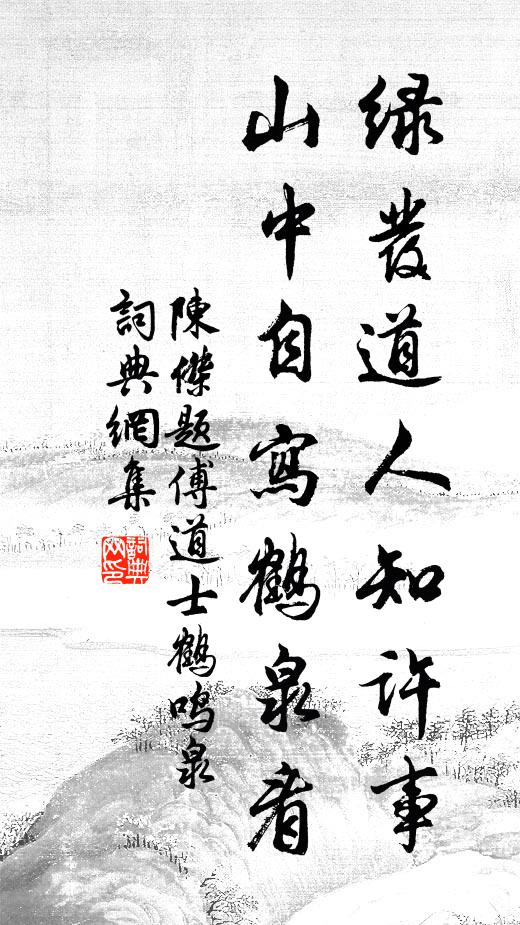 緑髮道人知許事
山中自寫鶴泉看
陳傑題傅道士鶴鳴泉
詞典網集
詞典網印